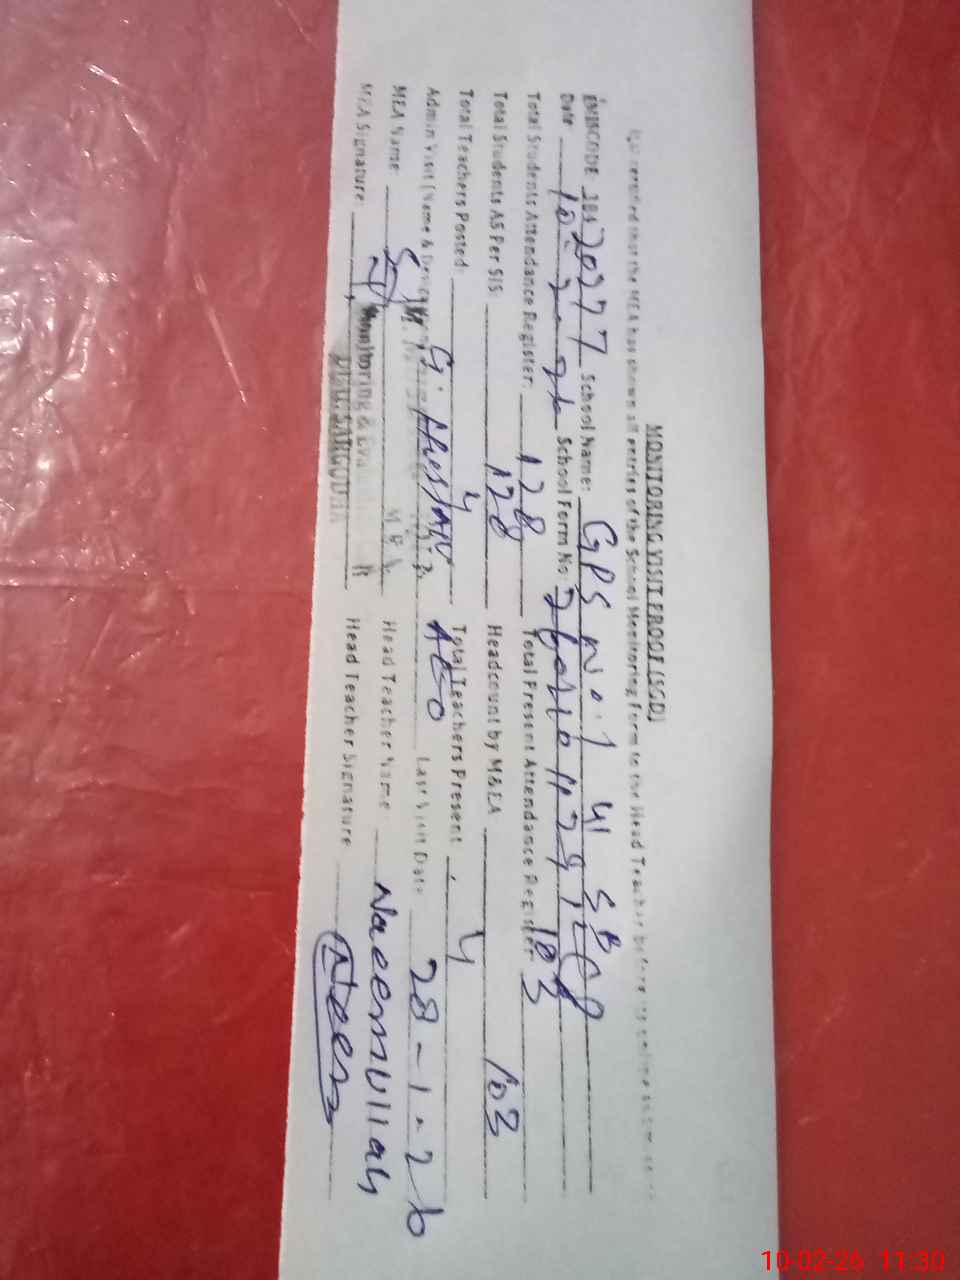 MONITORING VISIT PROOF (SGD)
It is certified that the MEA has shown all entries of the School Monitoring Form to the Head Teacher before its online
EMISCODE 38420277 School Name: GPS No. 1 41 SB
Date 10-2-26 School Form No:
Total Students Attendance Register: 128 Total Present Attendance Register: 103
Total Students AS Per SIS: 128 Headcount by M&EA 103
Total Teachers Posted: 4 Total Teachers Present: 4
Admin Visit (Name & AEO Last Visit Date: 28-1-26
MEA Name: Head Teacher Name: Naeemullah
MEA Signature: Monitoring & Head Teacher Signature Naeem
Distt: SARGODHA
10-02-26 11:30